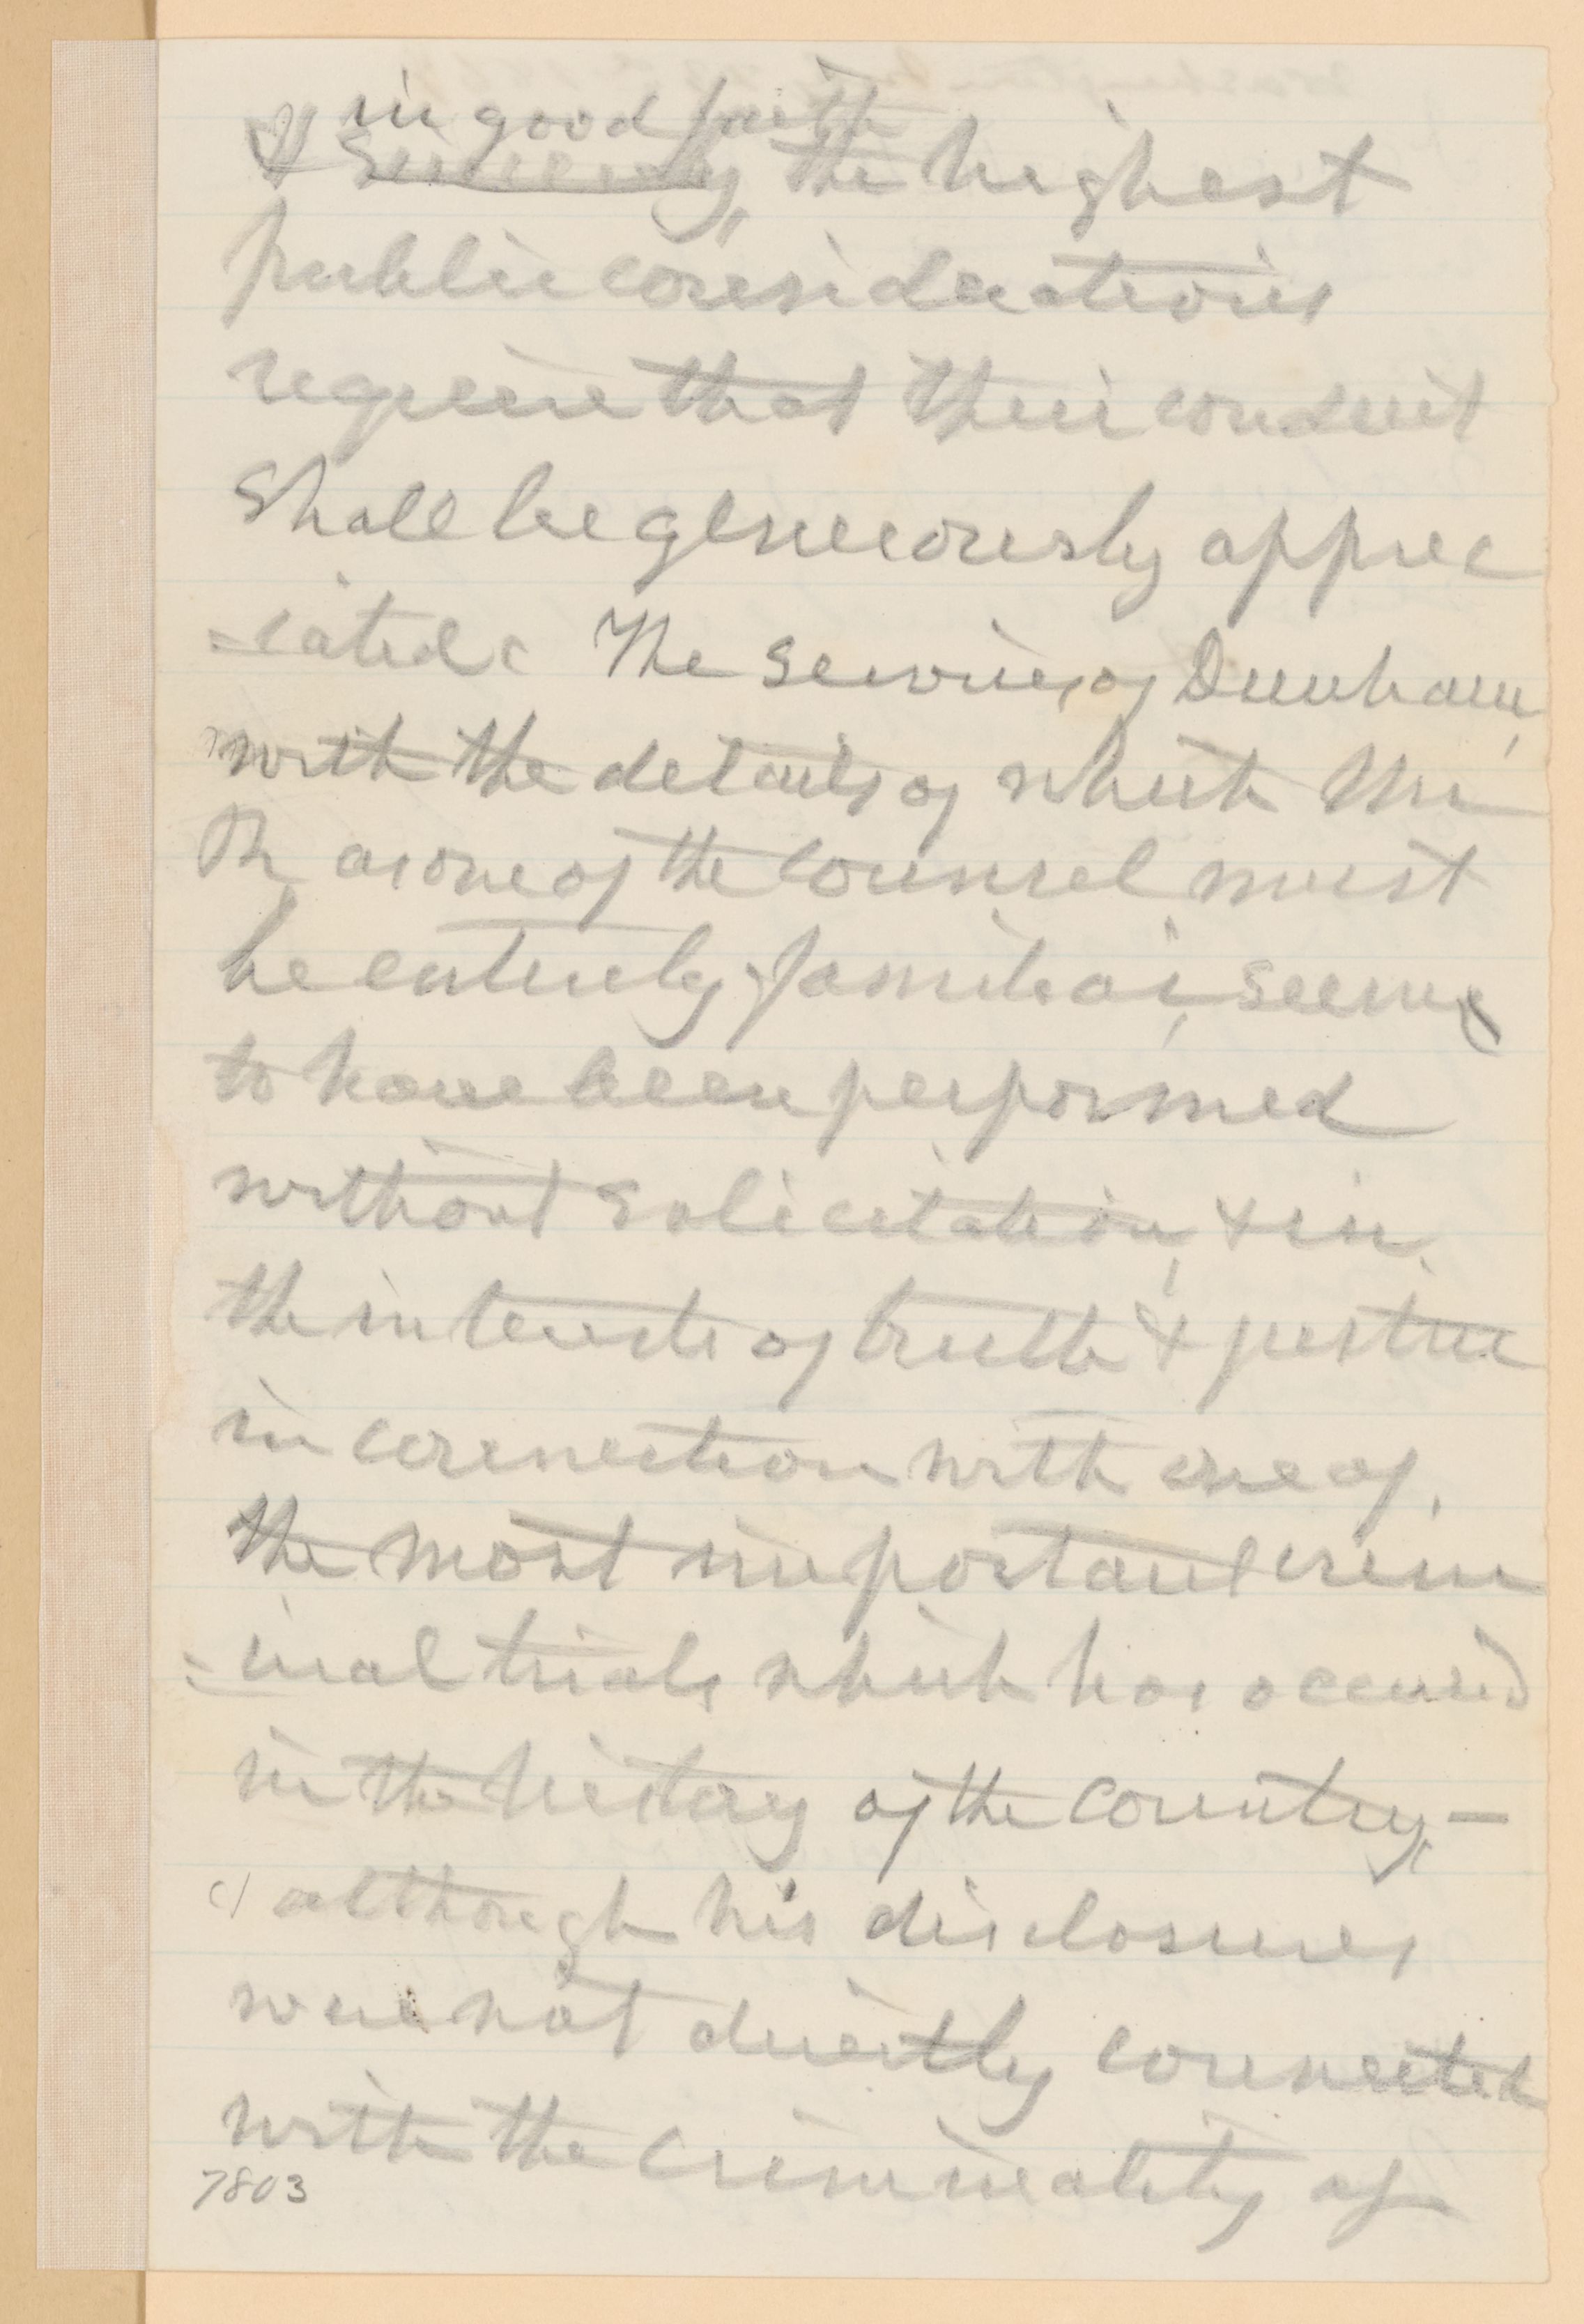 in good faith
& sincerely, the highest
public considerations
require that their conduct
shall be generously apprec
=iated. The services of Dunham,
with the details of which the
P. as one of the counsel must
be entirely familiar, seems
to have been performed
without solicitation, & in
the interests of truth & justice
in connection with one of
the most important crim
=inal trials which has occurred
in the history of the country, —
although his disclosures
were not directly connected
with the criminality of
7803